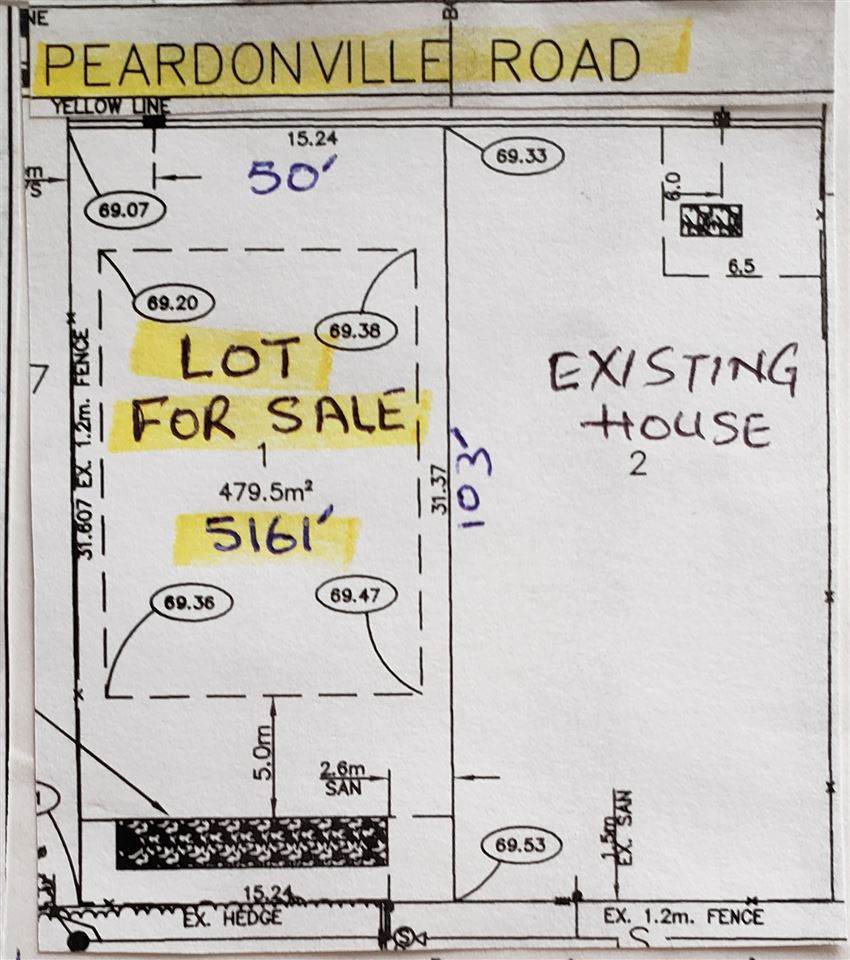 NE
PEARDONVILLE ROAD
YELLOW LINE
15.24
50'
69.33
69.07
6.0
6.5
69.20
69.38
LOT
FOR SALE
1
479.5m²
5161'
EXISTING
HOUSE
2
7
31.607 EX. 1.2m. FENCE
31.37
103'
69.36
69.47
5.0m
2.6m
SAN
69.53
1.5m
EX. SAN
15.24
EX. HEDGE
EX. 1.2m. FENCE
S
S